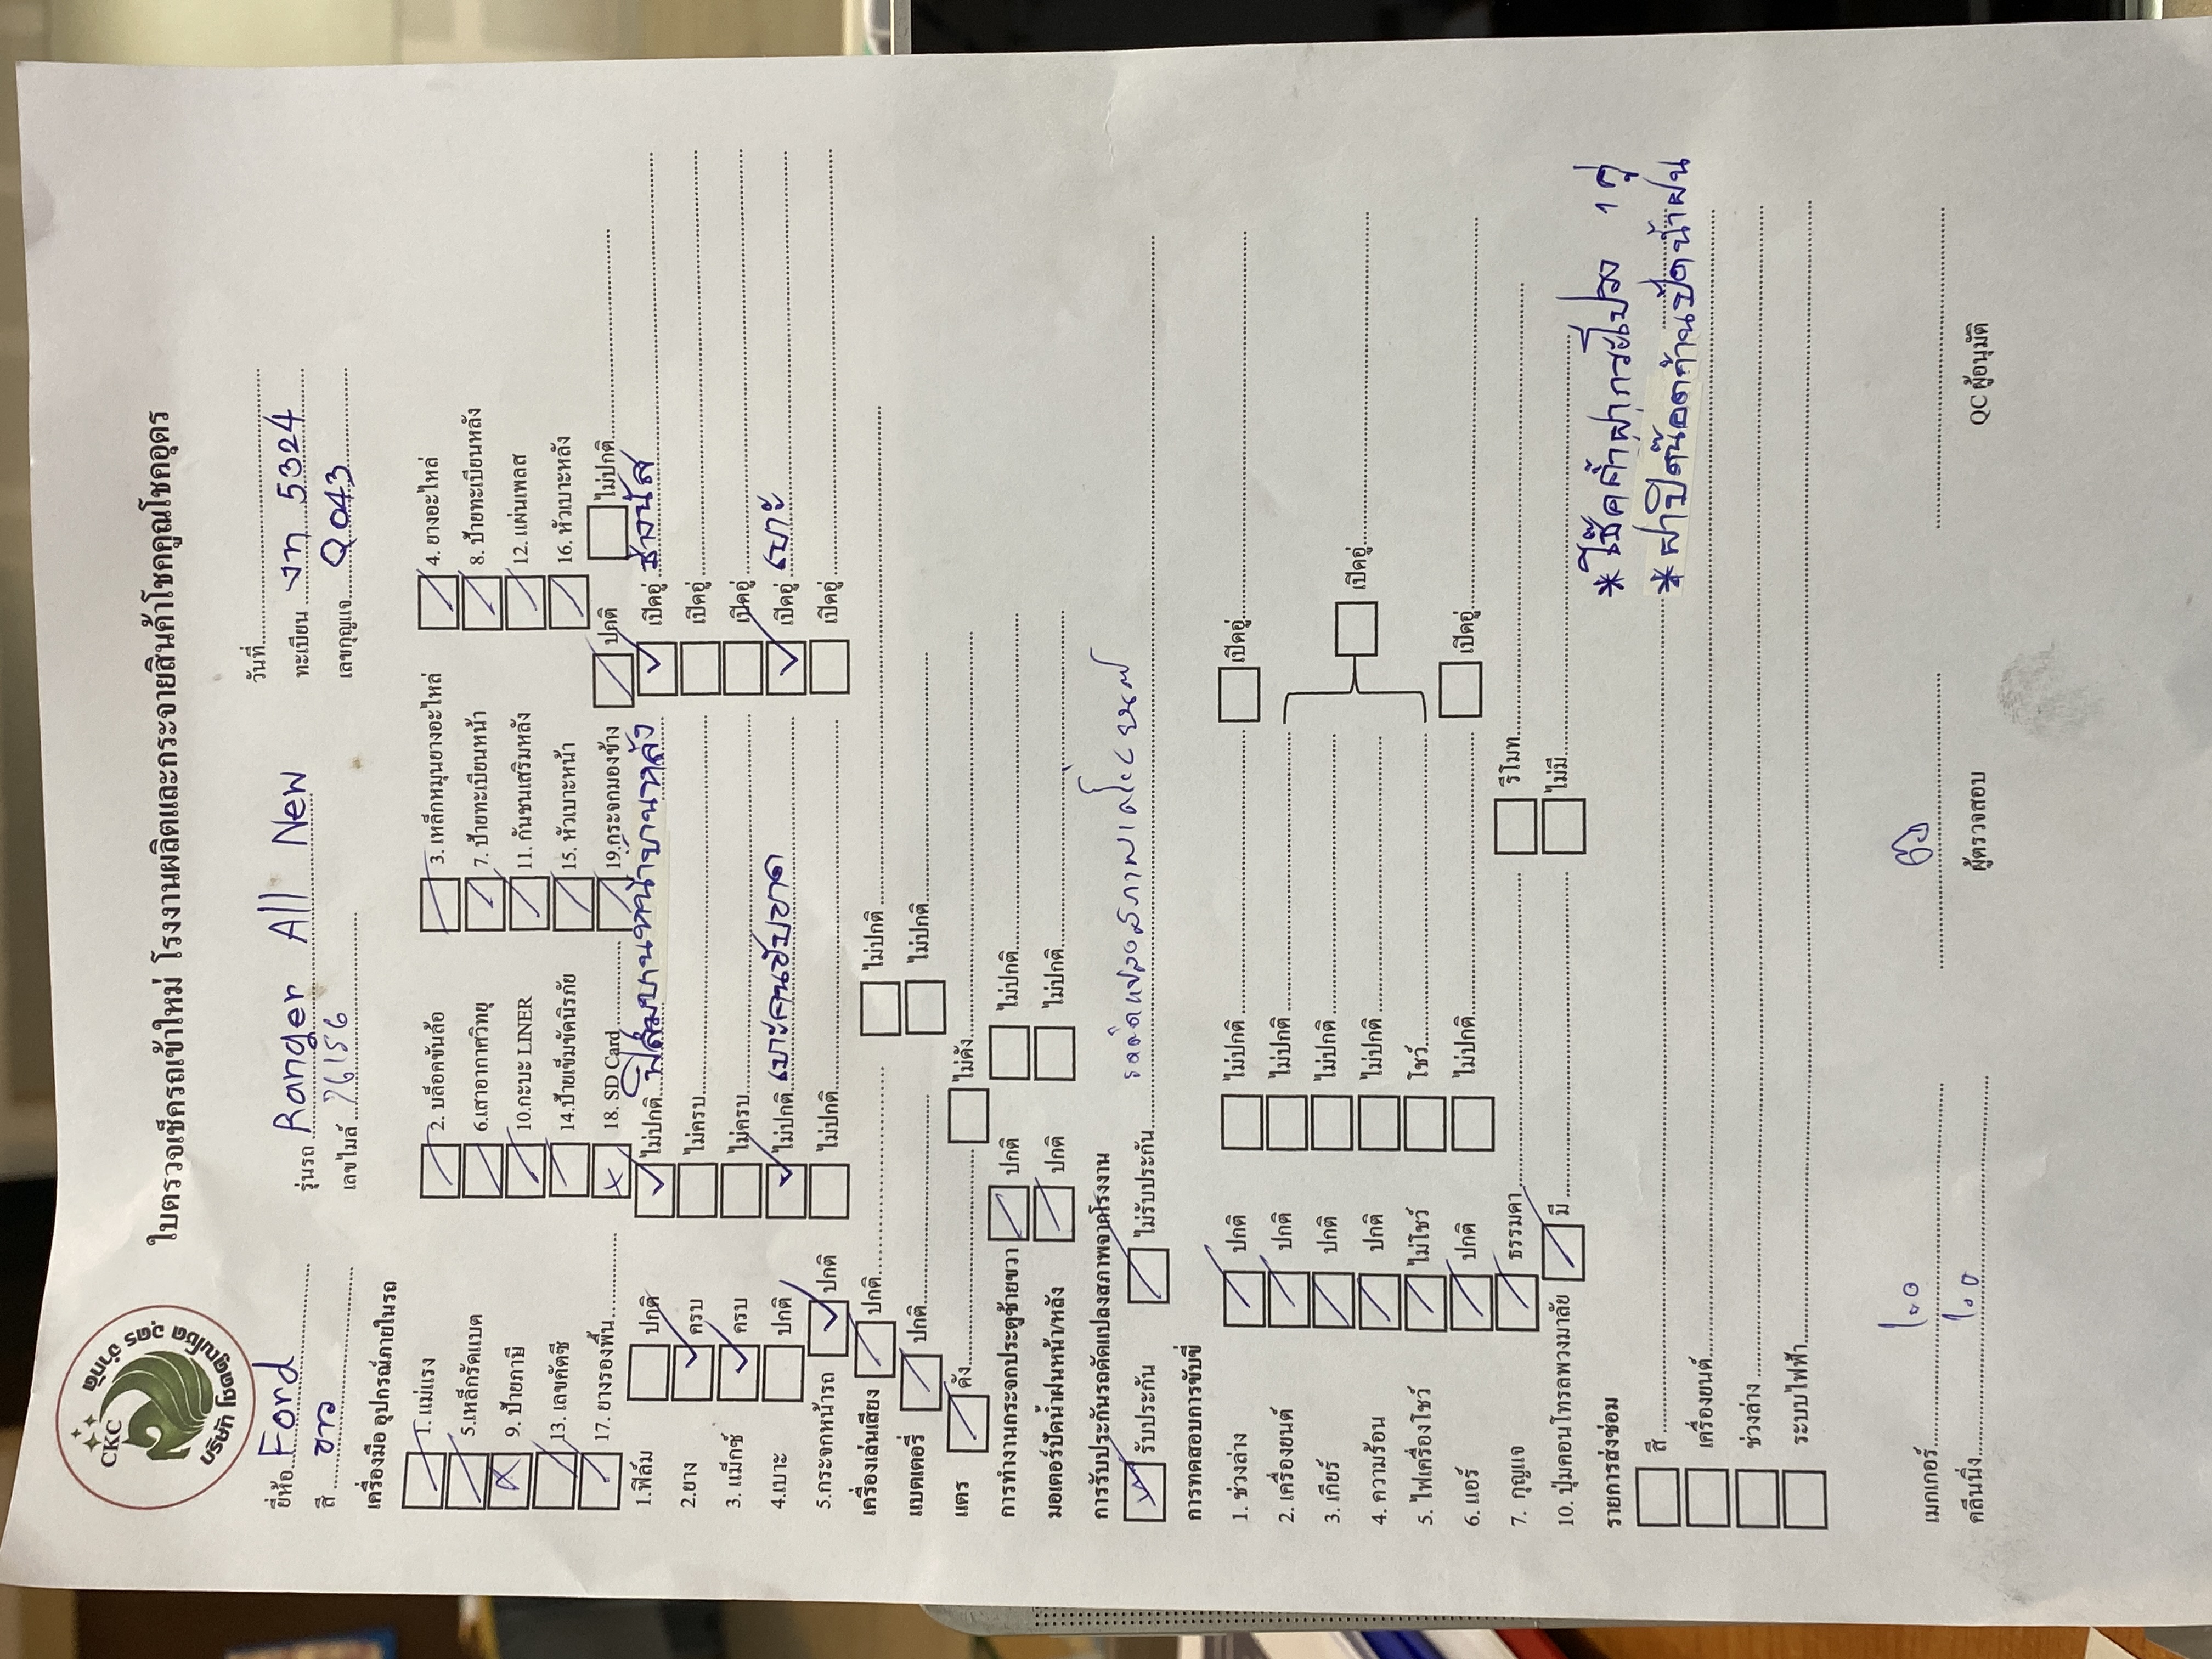 บริษัท โชคคูณโชค อุดร จำกัด
CKC
ใบตรวจเช็ครถเข้าใหม่ โรงงานผลิตและกระจายสินค้าโชคคูณโชคอุดร
วันที่
ยี่ห้อ Ford รุ่นรถ Ranger All New ทะเบียน งท 5324
สี ขาว เลขไมล์ 76156 เลขกุญแจ Q043
เครื่องมือ อุปกรณ์ภายในรถ
1. แม่แรง 2. บล็อคขันล้อ 3. เหล็กหมุนยางอะไหล่ 4. ยางอะไหล่
5.เหล็กรัดแบต 6.เสาอากาศวิทยุ 7. ป้ายทะเบียนหน้า 8. ป้ายทะเบียนหลัง
9. ป้ายภาษี 10.กะบะ LINER 11. กันชนเสริมหลัง 12. แผ่นเพลส
13. เลขคัตซี 14.ป้ายเข็มขัดนิรภัย 15. หัวเบาะหน้า 16. หัวเบาะหลัง
17. ยางรองพื้น 18. SD Card 19.กระจกมองข้าง ปกติ ไม่ปกติ
1.ฟิล์ม ปกติ ไม่ปกติ ฟิล์มบานหน้าบานหลัง เบิคอู่ ช่างนัส
2.ยาง ครบ ไม่ครบ เบิคอู่
3. แม็กซ์ ครบ ไม่ครบ เบิคอู่
4.เบาะ ปกติ ไม่ปกติ เบาะคนขับขาด เบิคอู่ เบาะ
5.กระจกหน้ารถ ปกติ ไม่ปกติ เบิคอู่
เครื่องเล่นเสียง ปกติ ไม่ปกติ
แบตเตอรี่ ปกติ ไม่ปกติ
แตร ดัง ไม่ดัง
การทำงานกระจกประตูซ้ายขวา ปกติ ไม่ปกติ
มอเตอร์ปัดน้ำฝนหน้า/หลัง ปกติ ไม่ปกติ
การรับประกันรถดัดแปลงสภาพจากโรงงาน
รับประกัน ไม่รับประกัน
การทดสอบการขับขี่
1. ช่วงล่าง ปกติ ไม่ปกติ เบิคอู่
2. เครื่องยนต์ ปกติ ไม่ปกติ
3. เกียร์ ปกติ ไม่ปกติ เบิคอู่
4. ความร้อน ปกติ ไม่ปกติ
5. ไฟเครื่องโชว์ ไม่โชว์ โชว์
6. แอร์ ปกติ ไม่ปกติ เบิคอู่
7. กุญแจ ธรรมดา รีโมท
10. ปุ่มคอนโทรลพวงมาลัย มี ไม่มี
รายการส่งซ่อม *โช๊คค้ำฝากระโปรง 1 คู่
สี *ฝาปิดน๊อตก้านปัดน้ำฝน
เครื่องยนต์
ช่วงล่าง
ระบบไฟฟ้า
เมกเกอร์
คลีนนิ่ง ผู้ตรวจสอบ QC ผู้อนุมัติ